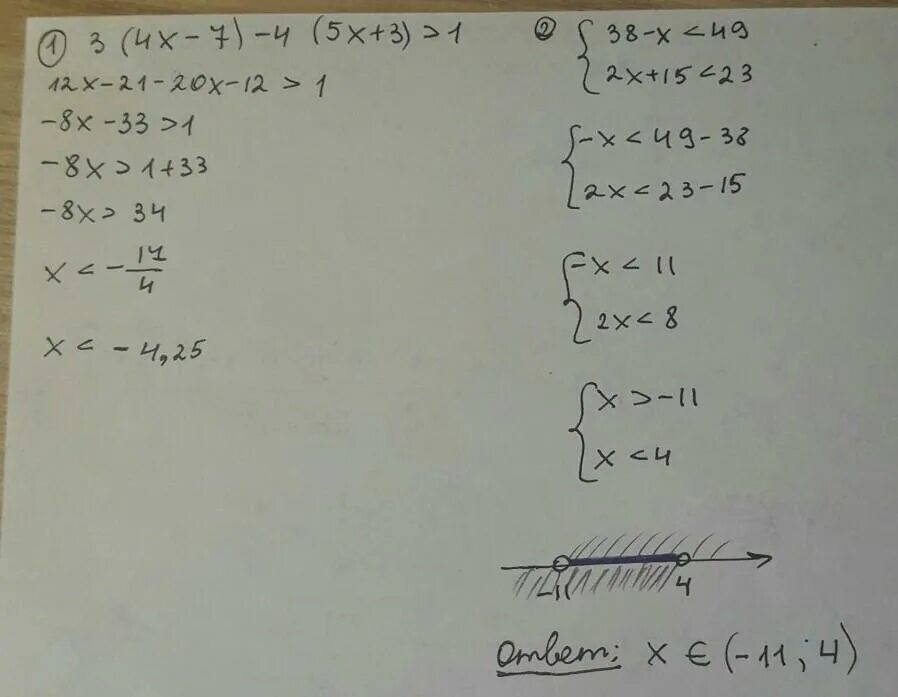 ① 3 (4x-7)-4 (5x+3)>1
12x-21-20x-12 > 1
-8x-33>1
-8x>1+33
-8x> 34
x < -17/4
x < -4,25
② {38-x<49
2x+15<23
{-x<49-38
2x<23-15
{-x<11
2x<8
{x>-11
x<4
-11 4
Ответ: x ∈ (-11; 4)